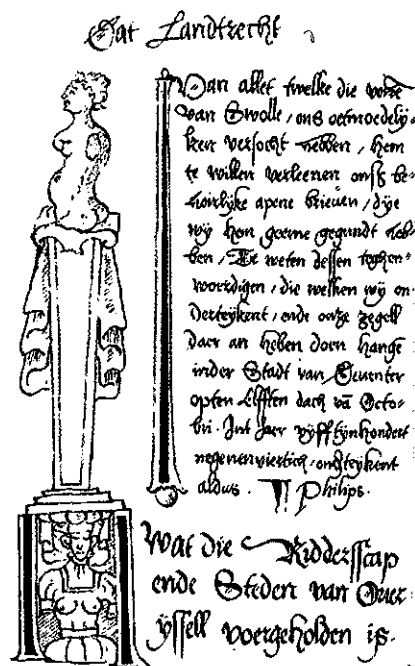 Dat Landtrecht
Van allet twelke die vorss
van Swolle, ons oetmoedelij-
ken versocht hebben, hem
te willen verleenen onse be-
hoirlijke apene brieuen, dye
wy hon geerne gegundt heb-
ben, Te weten dessen teghen-
woerdigen, die welken wy on-
derteykent, ende onze zegell
daer an heben doen hange
inder Stadt van Deuenter
opten Elfften dach va Octo-
bri. Int Jaer vyfftynhondert
negenenviertich, onderteykent
aldus. Philips.
Wat die Ridderscap
ende Steden van Ouer-
yssell voergeholden is.